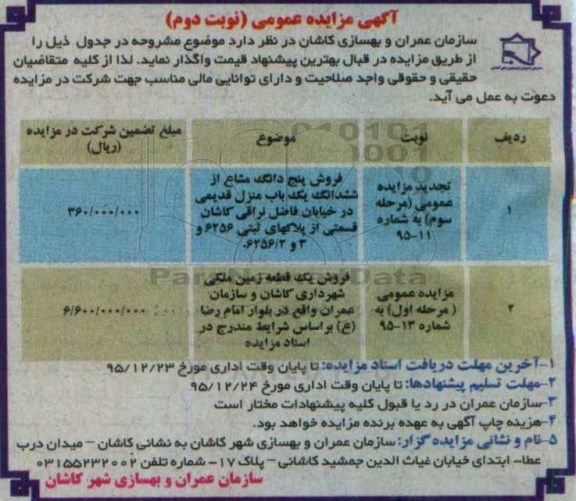 آگهی مزایده عمومی (نوبت دوم)
سازمان عمران و بهسازی کاشان در نظر دارد موضوع مشروحه در جدول ذیل را
از طریق مزایده در قبال بهترین پیشنهاد قیمت واگذار نماید. لذا از کلیه متقاضیان
حقیقی و حقوقی واجد صلاحیت و دارای توانایی مالی مناسب جهت شرکت در مزایده
دعوت به عمل می آید.
ردیف نوبت موضوع مبلغ تضمین شرکت در مزایده
(ریال)
۱
تجدید مزایده
عمومی (مرحله
سوم) به شماره
۹۵-۱۱
فروش پنج دانگ مشاع از
ششدانگ یک باب منزل قدیمی
در خیابان فاضل نراقی کاشان
قسمتی از پلاکهای ثبتی ۶۲۵۶ و
۳ و ۶۲۵۶/۲.
۳۶۰/۰۰۰/۰۰۰
۲
مزایده عمومی
(مرحله اول) به
شماره ۱۳-۹۵
فروش یک قطعه زمین ملکی
شهرداری کاشان و سازمان
عمران واقع در بلوار امام رضا
(ع) براساس شرایط مندرج در
اسناد مزایده
۶/۶۰۰/۰۰۰/۰۰۰
۱-آخرین مهلت دریافت اسناد مزایده: تا پایان وقت اداری مورخ ۹۵/۱۲/۲۳
۲-مهلت تسلیم پیشنهادها: تا پایان وقت اداری مورخ ۹۵/۱۲/۲۴
۳-سازمان عمران در رد یا قبول کلیه پیشنهادات مختار است
۴-هزینه چاپ آگهی به عهده برنده مزایده خواهد بود.
۵-نام و نشانی مزایده گزار: سازمان عمران و بهسازی شهر کاشان به نشانی کاشان - میدان درب
عطا- ابتدای خیابان غیاث الدین جمشید کاشانی - پلاک ۱۷- شماره تلفن ۰۳۱۵۵۲۳۲۰۰۲
سازمان عمران و بهسازی شهر کاشان